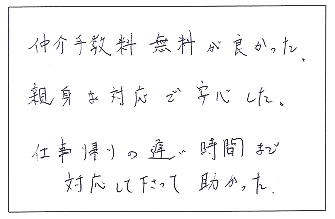 仲介手数料無料が良かった。
親身な対応で安心した。
仕事帰りの遅い時間まで
対応して下さって助かった。